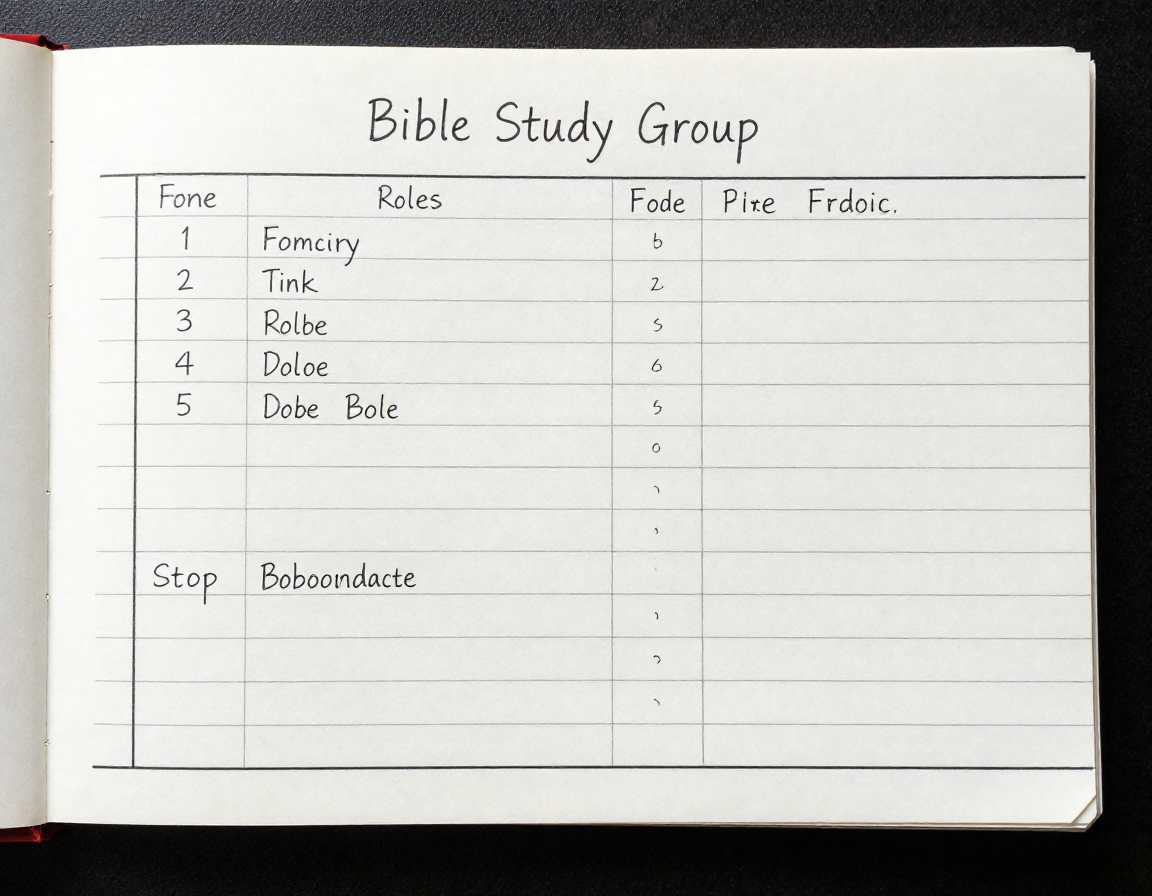 Bible Study Group
Fone Roles Fode Pire Frdoic.
1 Fomciry 6
2 Tink 2
3 Rolbe s
4 Doloe 6
5 Dobe Bole s
o
Stop Boboomdacte